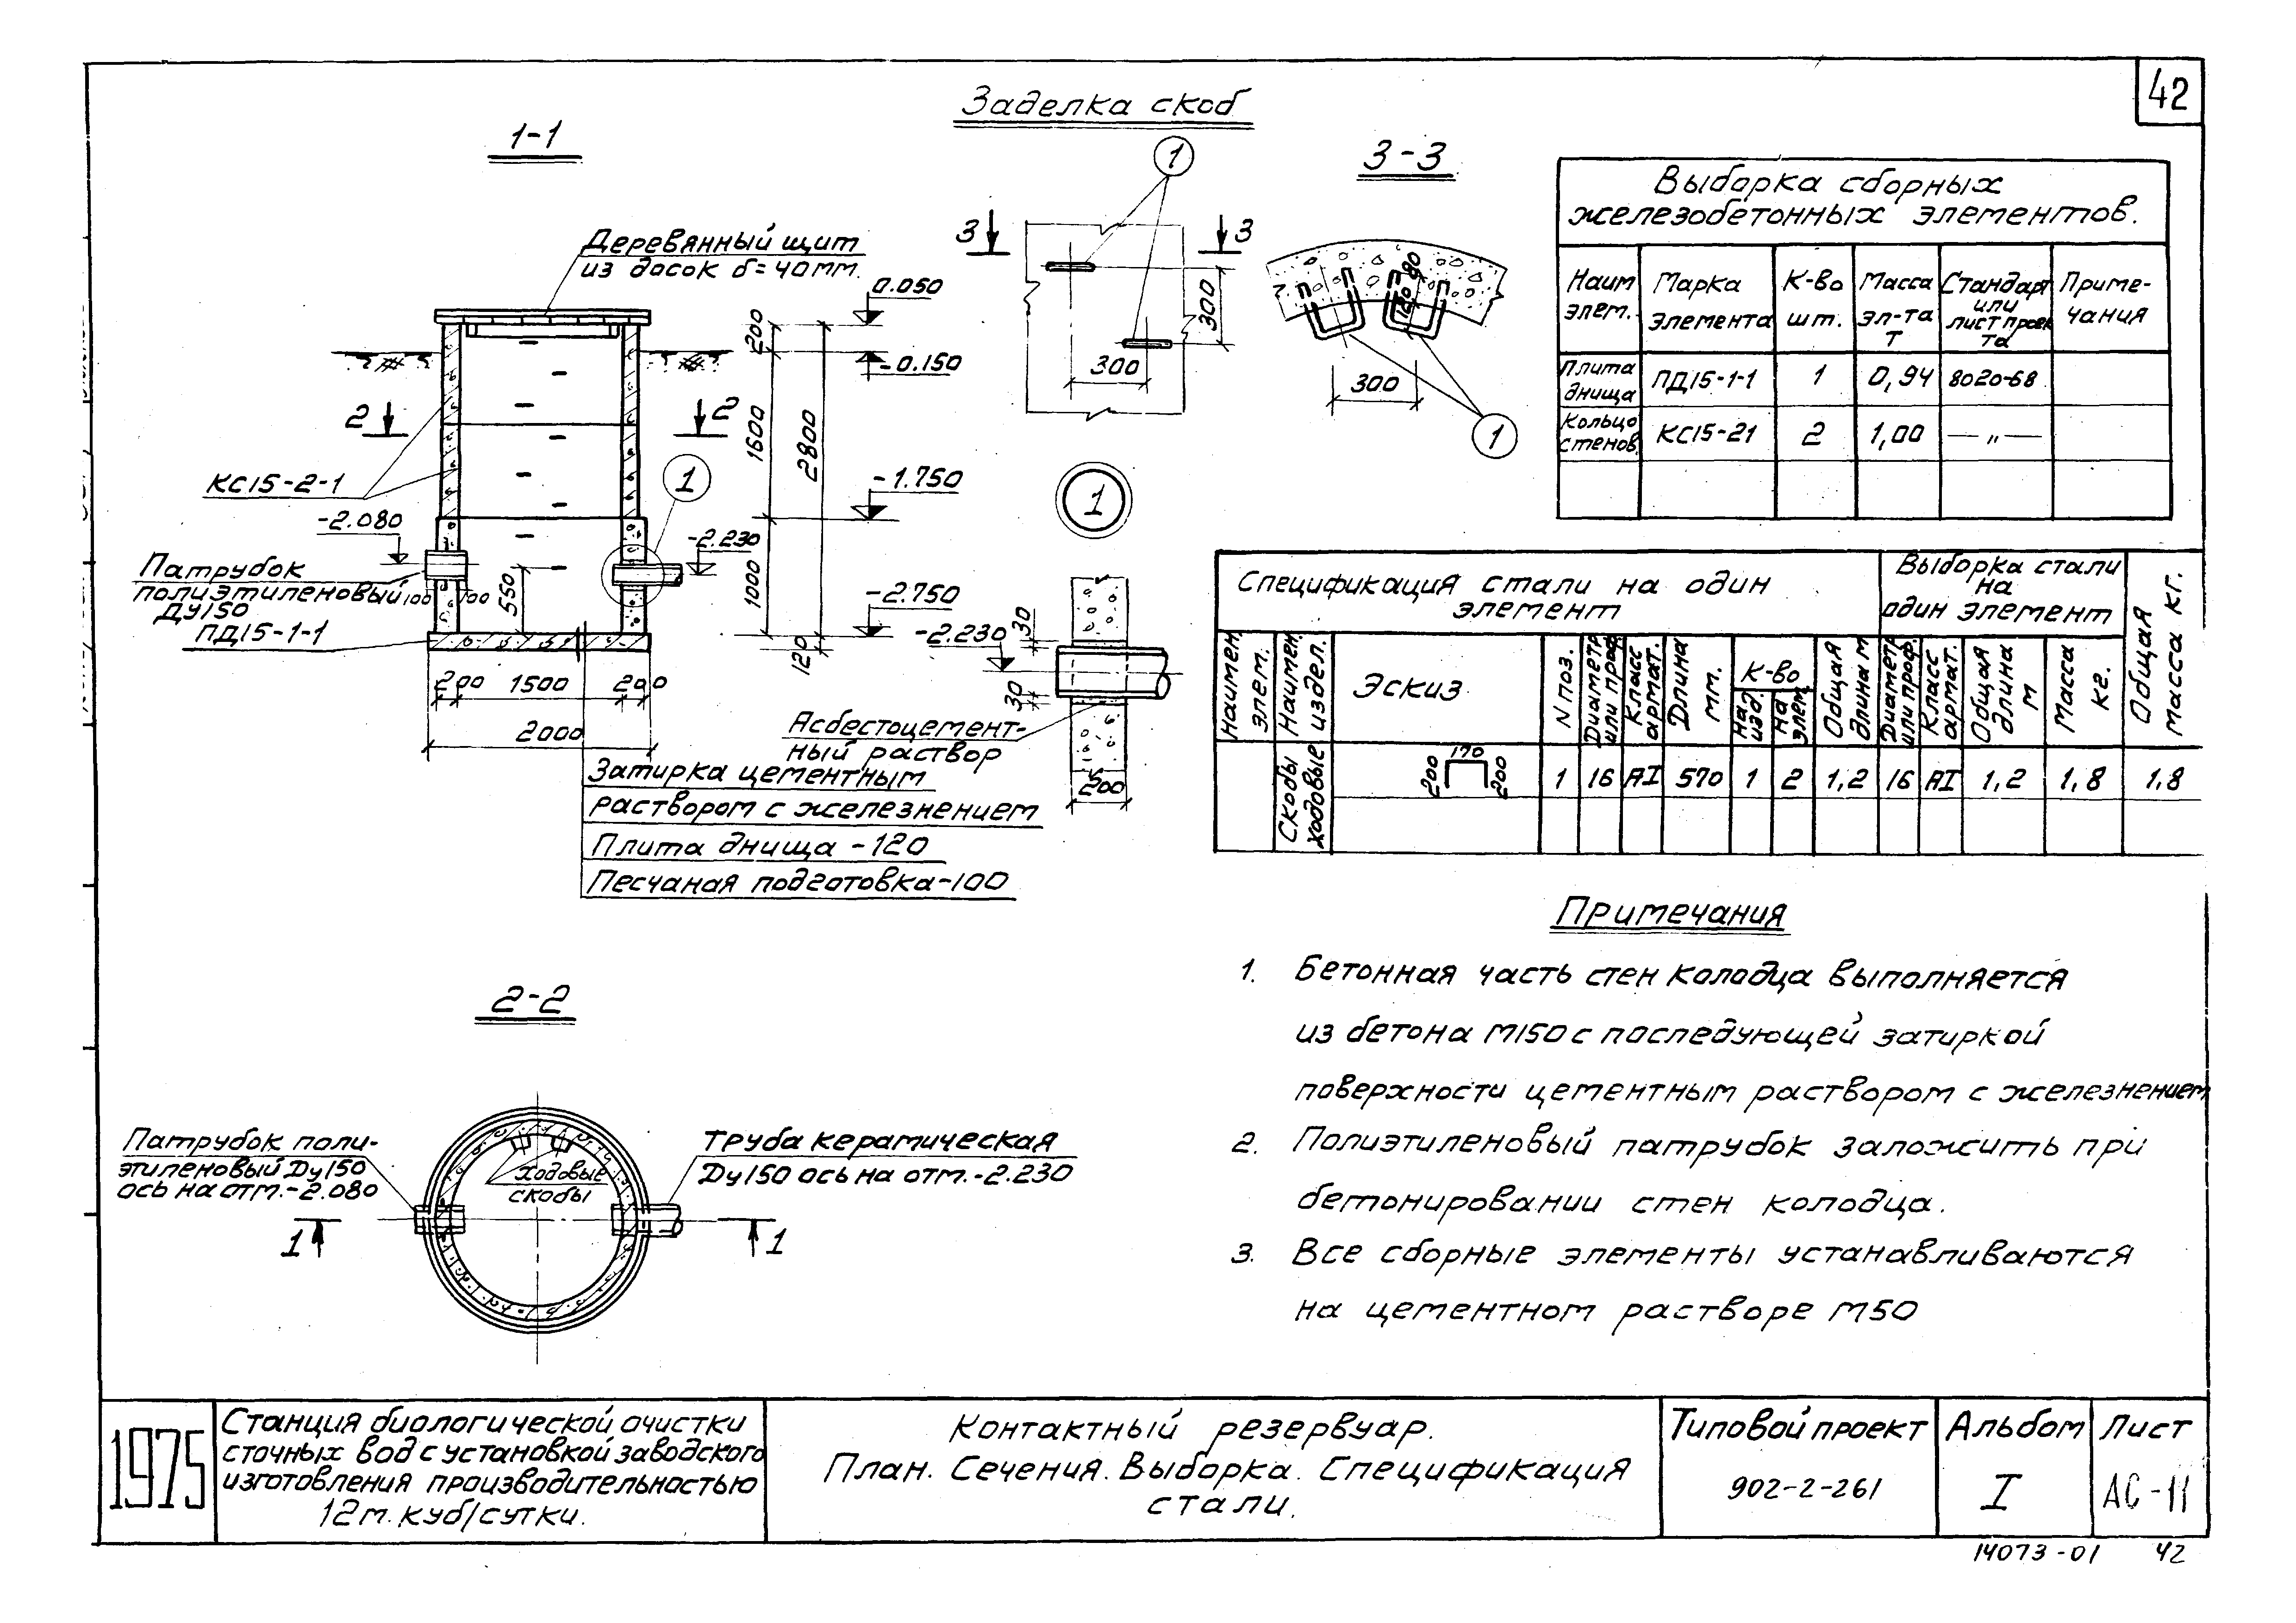 42
Заделка скоб
1-1
Деревянный щит
из досок б=40мм.
0.050
-0.150
200
1600
2800
2
2
КС15-2-1
-1.750
-2.080
1
-2.230
Патрубок
полиэтиленовый
Ду150
100
100
550
1000
ПД15-1-1
-2.750
120
200
1500
200
2000
Затирка цементным
раствором с железнением
Плита днища -120
Песчаная подготовка-100
1
3
3
300
300
3-3
80
120
300
1
1
-2.230
30
30
Асбестоцемент-
ный раствор
200
Выборка сборных
железобетонных элементов.
Наим элем.
Марка элемента
К-во шт.
Масса эл-та Т
Стандарт или лист проек та
Приме- чания
Плита днища
ПД15-1-1
1
0,94
8020-68
Кольцо стенов.
КС15-21
2
1,00
— „ —
Спецификация стали на один
элемент
Выборка стали
на
один элемент
Общая масса кг.
Наимен. элем.
Наимен. издел.
Эскиз
N поз.
Диаметр или проф.
Класс армат.
Длина мм.
К-во
на изд.
на элем.
Общая длина м
Диаметр или проф.
Класс армат.
Общая длина м
Масса кг.
Скобы ходовые
200
170
200
1
16
АI
570
1
2
1,2
16
АI
1,2
1,8
1,8
Примечания
1. Бетонная часть стен колодца выполняется
из бетона М150 с последующей затиркой
поверхности цементным раствором с железнением
2. Полиэтиленовый патрубок заложить при
бетонировании стен колодца.
3. Все сборные элементы устанавливаются
на цементном растворе М50
2-2
Патрубок поли-
этиленовый Ду150
ось на отм.-2.080
ходовые
скобы
Труба керамическая
Ду150 ось на отм.-2.230
1
1
1975
Станция биологической очистки
сточных вод с установкой заводского
изготовления производительностью
12м.куб/сутки.
Контактный резервуар.
План. Сечения. Выборка. Спецификация
стали.
Типовой проект
902-2-261
Альбом
I
Лист
АС-11
14073-01 42